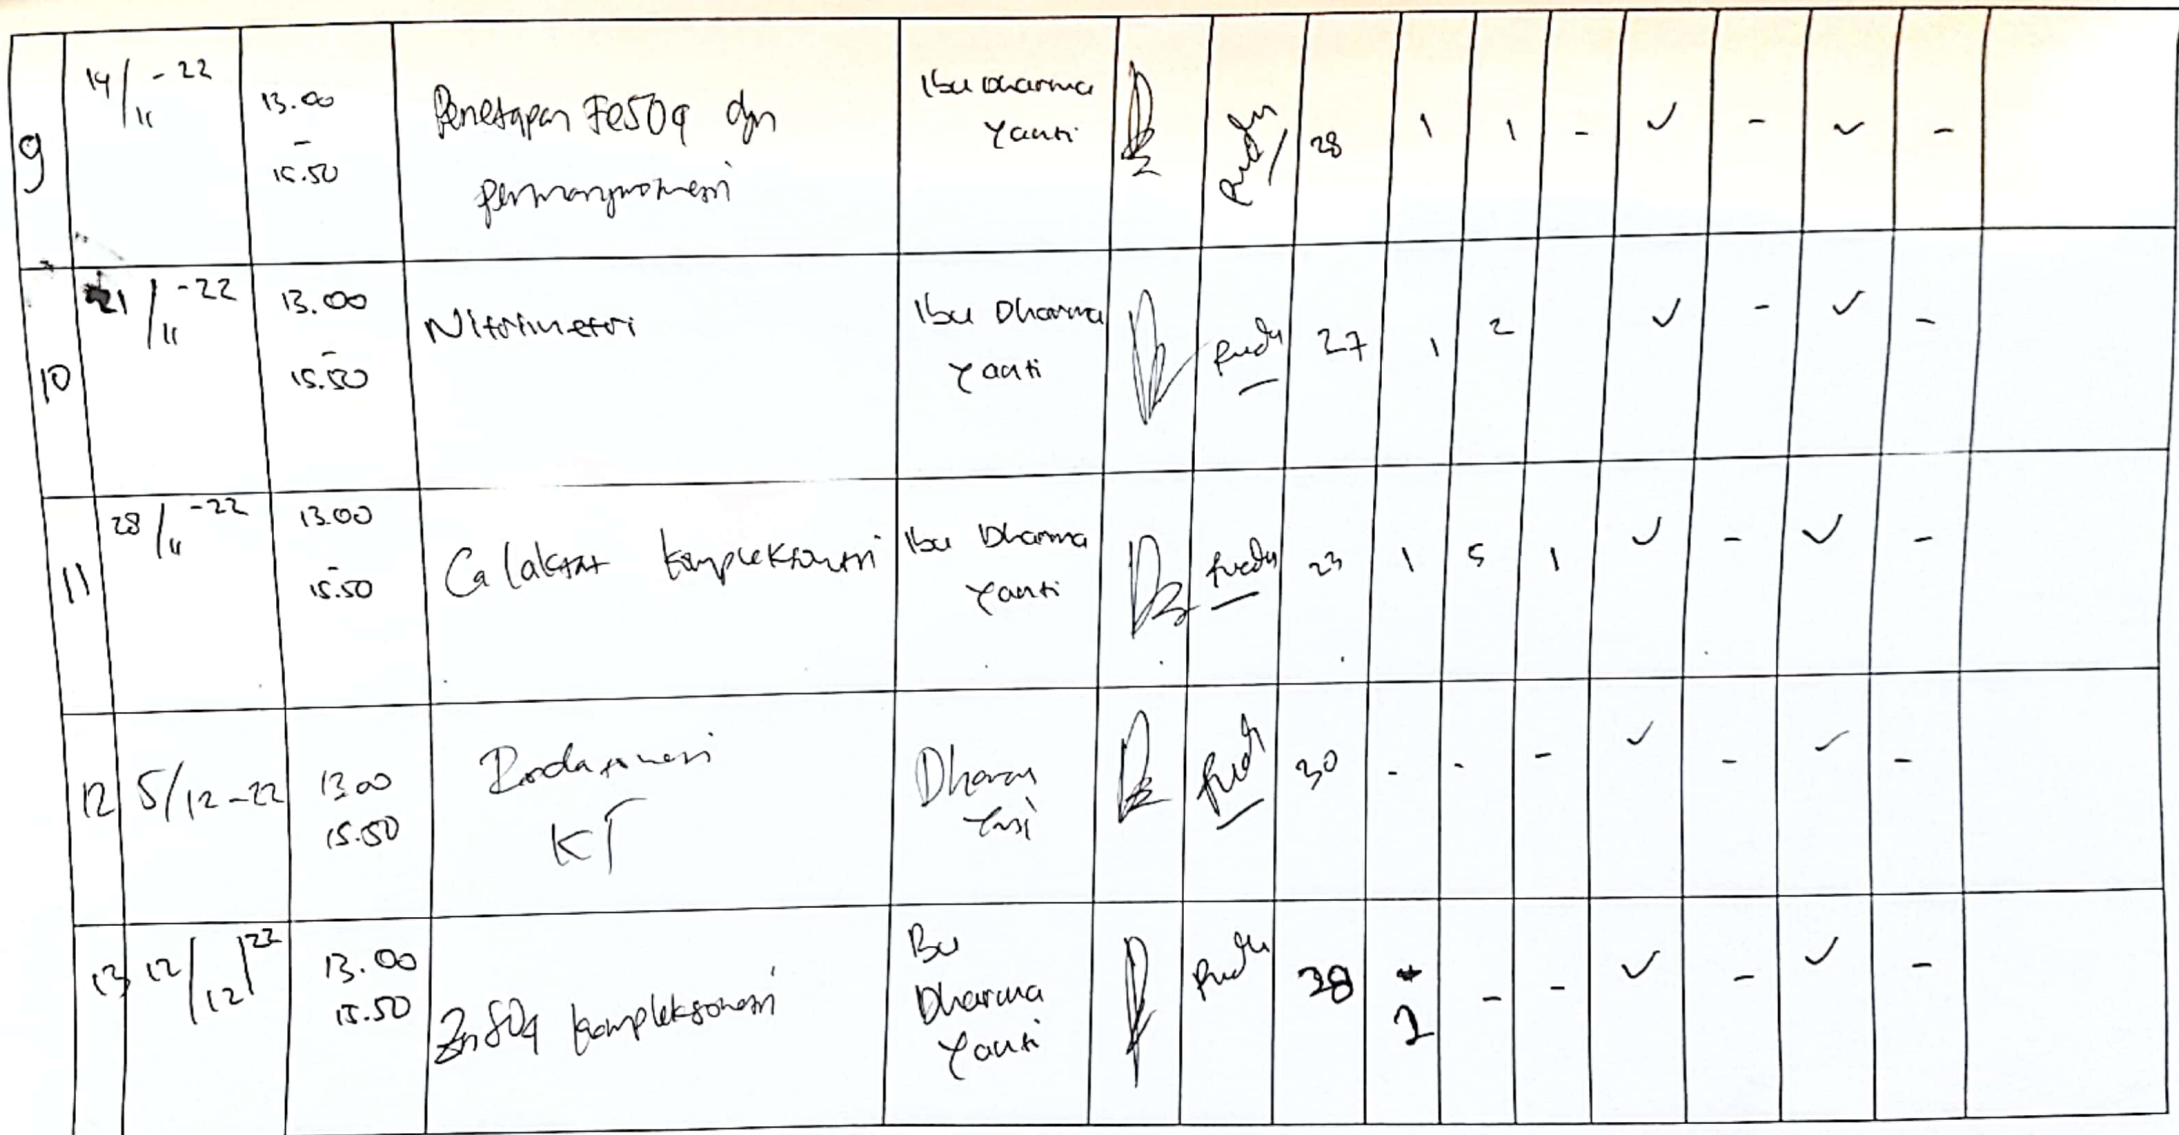 9
14/11-22
13.00
-
15.50
Penetapan FeSO4 dgn
permanganometri
Ibu Dharma
Yanti
28 1 1 - ✓ - ✓ -
10
21/11-22
13.00
-
15.50
Nitrimetri
Ibu Dharma
Yanti
27 1 2 ✓ - ✓ -
11
28/11-22
13.00
-
15.50
Ca laktat kompleksometri
Ibu Dharma
Yanti
23 1 5 1 ✓ - ✓ -
12
5/12-22
13.00
15.50
KT
30 - - - ✓ - ✓ -
13
12/12/22
13.00
15.50
ZnSO4 kompleksometri
Bu
Dharma
Yanti
2 - - ✓ - ✓ -